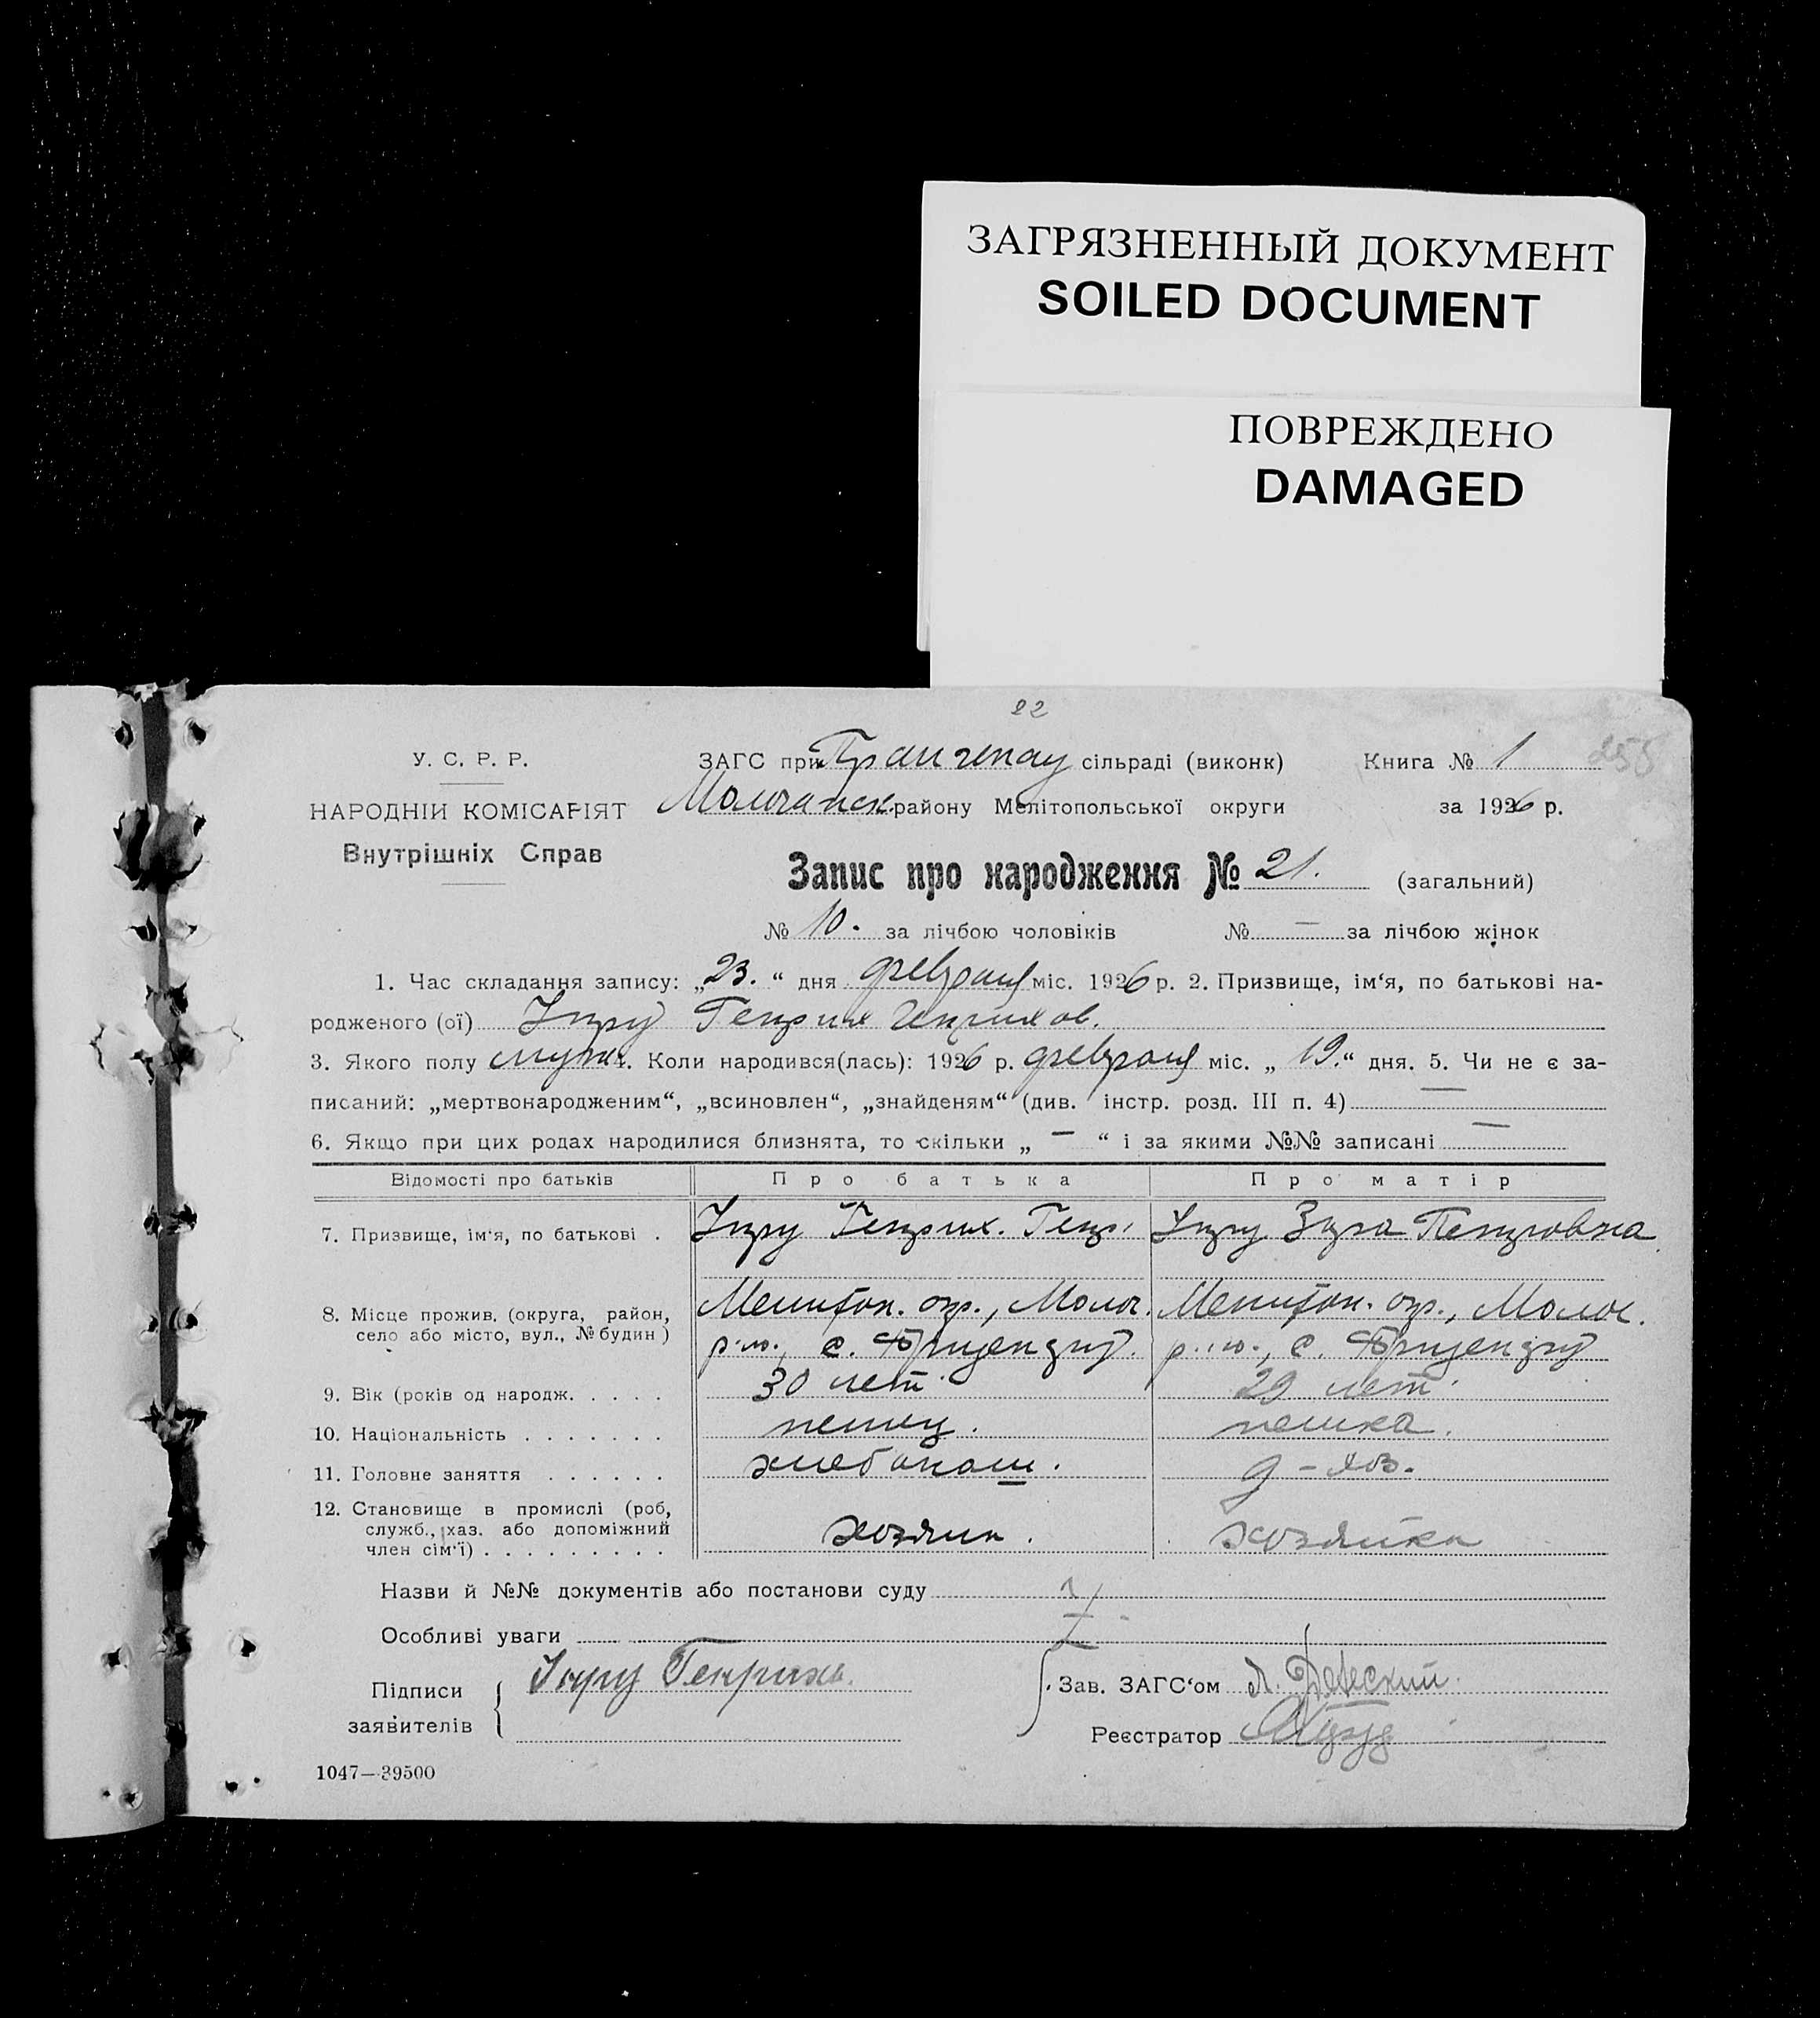 ЗАГРЯЗНЕННЫЙ ДОКУМЕНТ
SOILED DOCUMENT
ПОВРЕЖДЕНО
DAMAGED
22
У. С. Р. Р.
НАРОДНІЙ КОМІСАРІЯТ
Внутрішніх Справ
ЗАГС при сільраді (виконк) Книга № 1 255
Молочанск. району Мелітопольської округи за 1926 р.
Запис про народження № 21. (загальний)
№ 10. за лічбою чоловіків № — за лічбою жінок
1. Час складання запису: „23.“ дня февраля міс. 1926 р. 2. Призвище, ім‘я, по батькові на-
родженого (ої) Унру Генрих Генрихов.
3. Якого полу муж. 4. Коли народився(лась): 1926 р. февраля міс. „19.“ дня. 5. Чи не є за-
писаний: „мертвонародженим“, „всиновлен“, „знайденям“ (див. інстр. розд. III п. 4) —
6. Якщо при цих родах народилися близнята, то скільки „ — “ і за якими №№ записані —
Відомості про батьків Про батька Про матір
7. Призвище, ім‘я, по батькові . Унру Генрих. Генр. Унру Петровна
8. Місце прожив. (округа, район, село або місто, вул., № будин) Мелитоп. окр., Молоч. Мелитоп. окр., Молоч.
р-на, с. р-на, с.
9. Вік (років од народж. . . . . 30 лет. 29 лет.
10. Національність . . . . . . . немец. немка.
11. Головне заняття . . . . . . хлебопаш. д-хоз.
12. Становище в промислі (роб, служб., хаз. або допоміжний член сім‘ї) . . . . . . . . . хозяин. хозяйка
Назви й №№ документів або постанови суду
Особливі уваги
Підписи заявителів Унру Генрих
Зав. ЗАГС‘ом
Реєстратор
1047—39500